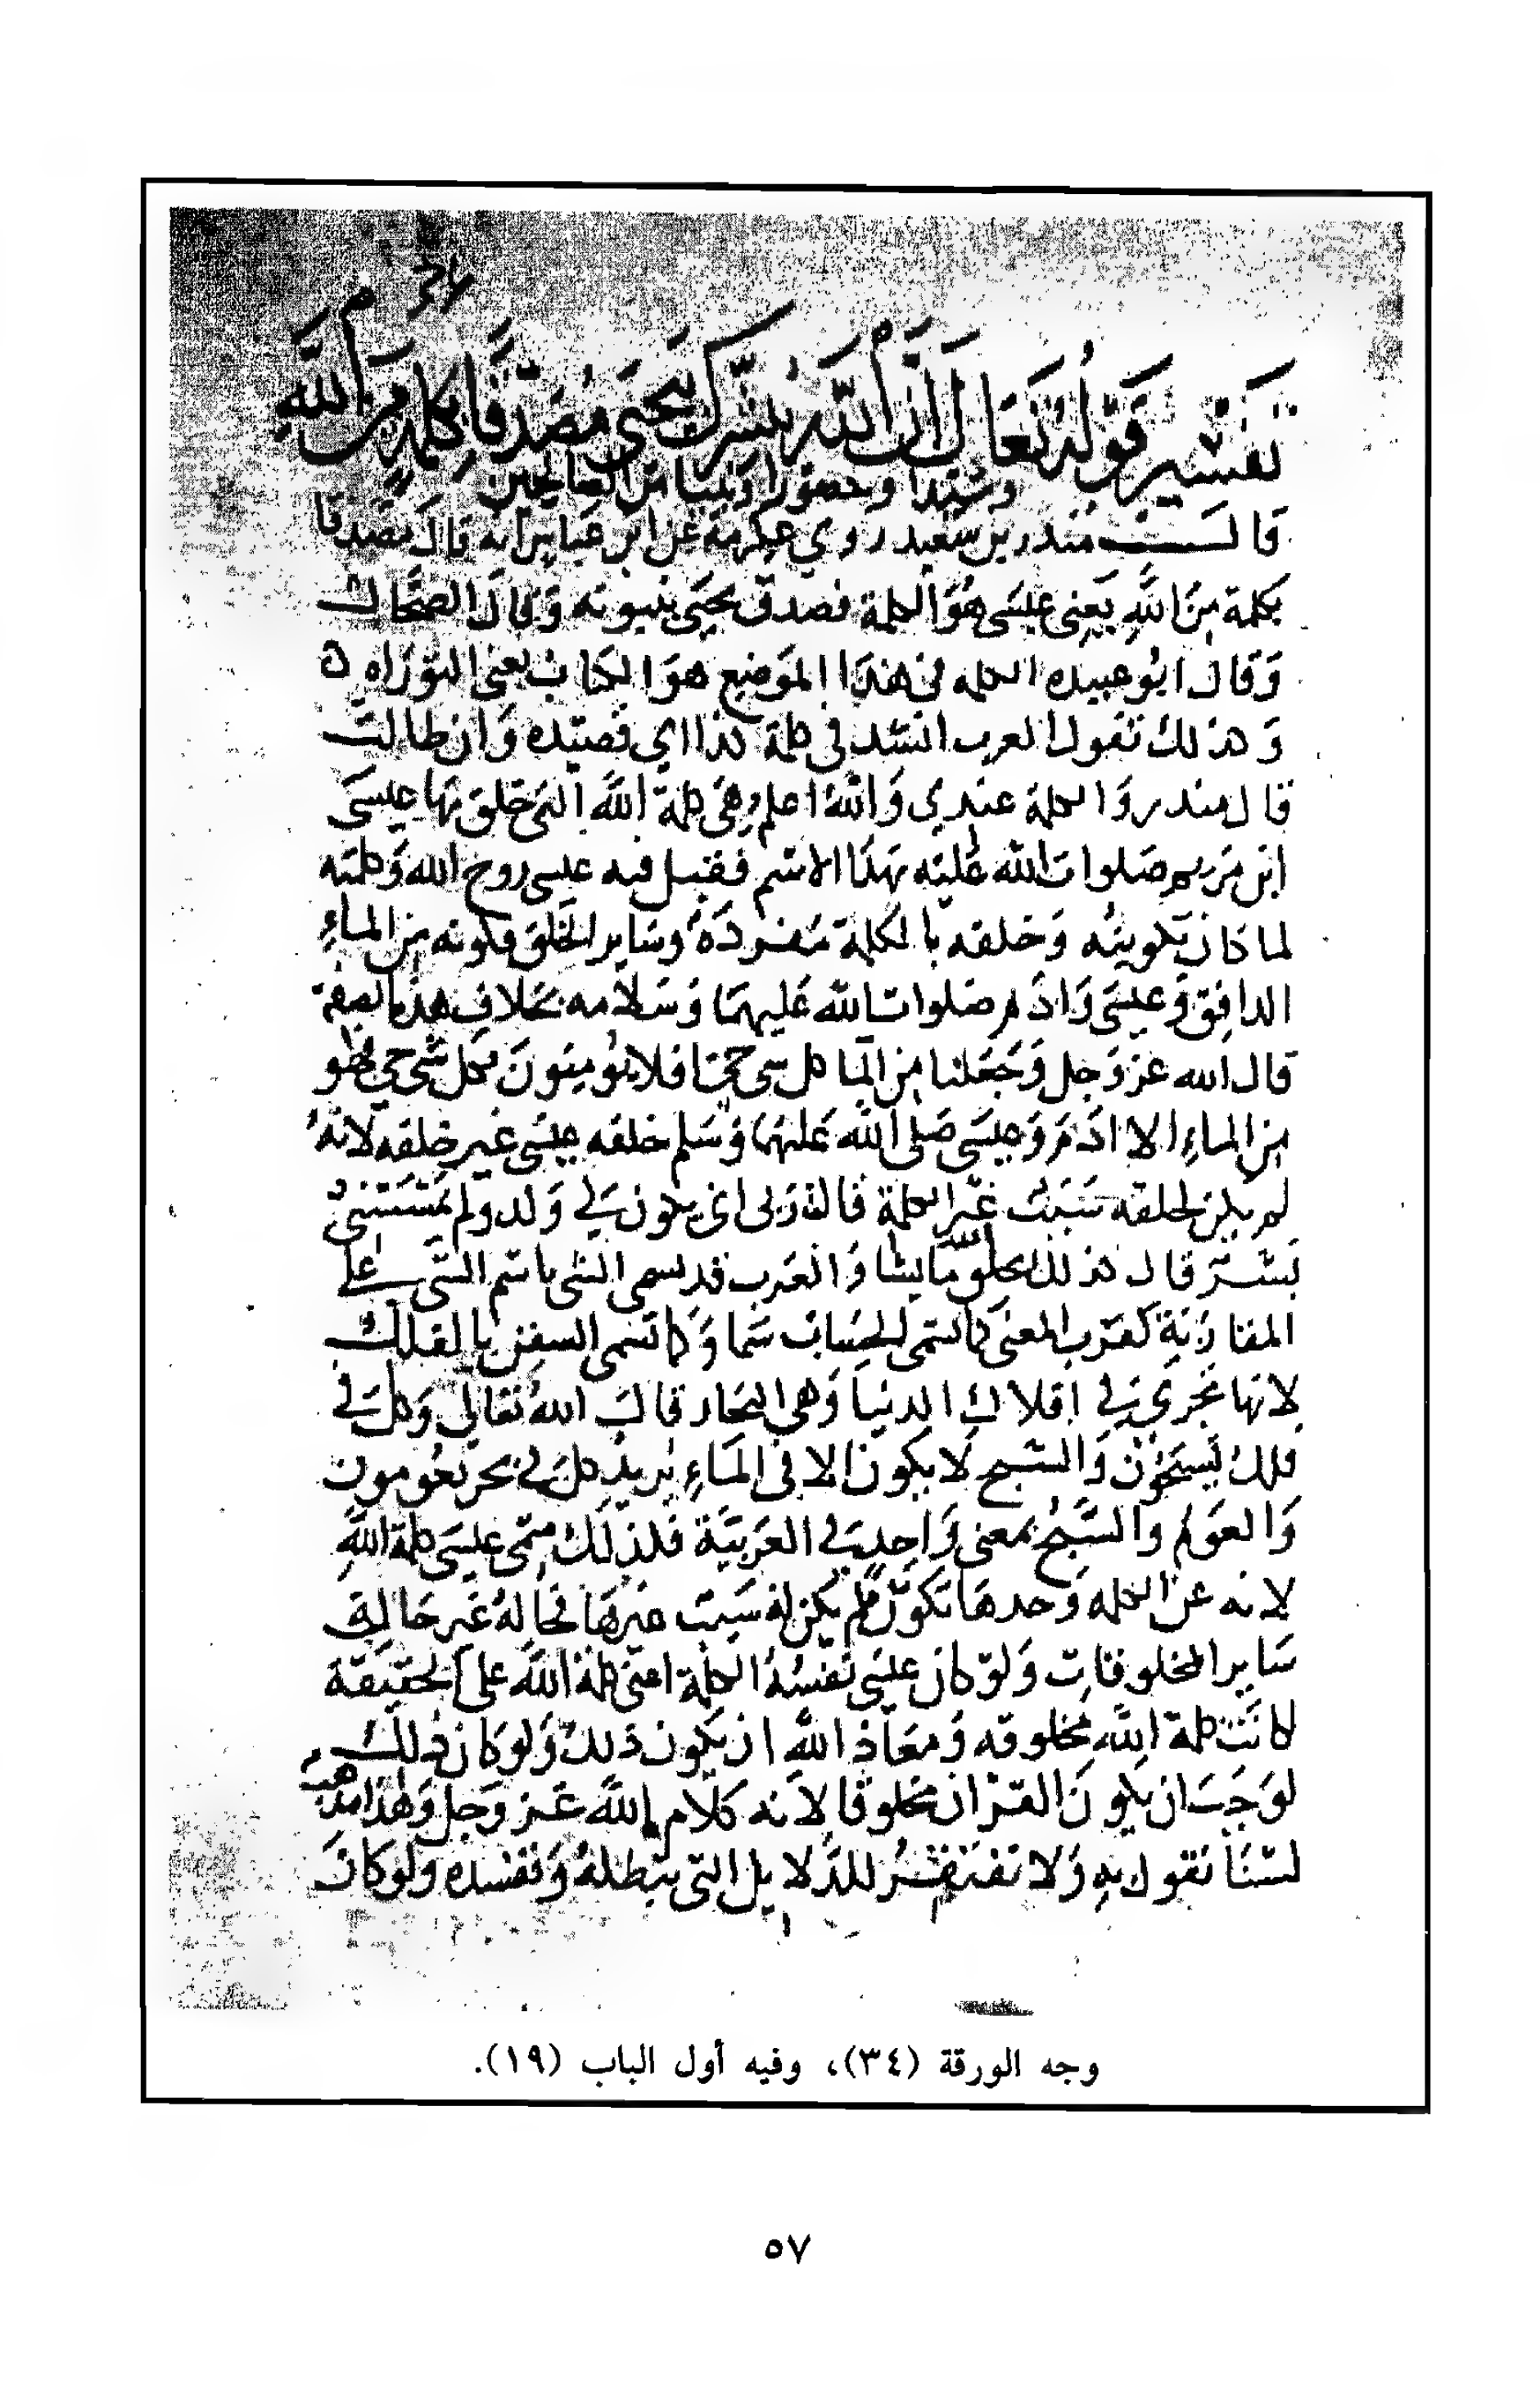 تفسير قوله تعالى ان الله يبشرك بيحيى مصدقا بكلمة من الله
وسيدا وحصورا ونبيا من الصالحين
قال منذر بن سعيد روي عكرمة عن ابن عباس انه قال مصدقا
بكلمة من الله يعني عيسى هو الكلمة فصدق يحيى بنبوته وقال الضحاك
وقال ابو عبيده الكلمه في هذا الموضع هو الكتاب يعني التوراه
وكذلك تقول العرب انشد في كلمة كذا اي قصيده وان طالت
قال منذر والكلمة عندي والله اعلم هي كلمة الله التي خلق بها عيسى
ابن مريم صلوات الله عليه بهذا الاسم فقيل فيه عيسى روح الله وكلمته
لما كان تكوينه وخلقه بالكلمة مفردة وساير الخلق فكونه من الماء
الدافق وعيسى وادم صلوات الله عليهما وسلامه بخلاف هذه الصفة
قال الله عز وجل وجعلنا من الما كل شي حي افلا يؤمنون فكل شي حي فهو
من الماء الا ادم وعيسى صلى الله عليهما وسلم خلقه عيسى غير خلقه لانه
لم يكن لخلقه سبب غير الكلمة قالت رب انى يكون لي ولد ولم يمسسني
بشر قال كذلك الله يخلق ما يشا والعرب قد تسمي الشي باسم الشي على
المقارنة كقرب المعنى كما تسمى السحاب سما وكما تسمى السفن بالفلك
لانها تجري في افلاك الدنيا وهي البحار قال الله تعالى وكل في
فلك يسبحون والسبح لا يكون الا في الماء يريد كل في بحر يعومون
والعوم والسبح بمعنى واحد في العربية فلذلك سمى عيسى كلمة الله
لانه عن الكلمه وحدها تكون لم يكن له سبب غيرها فحاله غير حالة
ساير المخلوقات ولو كان عيسى نفسه الكلمة اعني كلمة الله على الحقيقة
لكانت كلمة الله مخلوقه ومعاذ الله ان يكون ذلك ولو كان ذلك
لوجب ان يكون القران مخلوقا لانه كلام الله عز وجل وهذا مذهب
لسنا نقول به ولا للدلايل التي تبطله وتفسده ولو كان
وجه الورقة (٣٤)، وفيه أول الباب (١٩).
٥٧